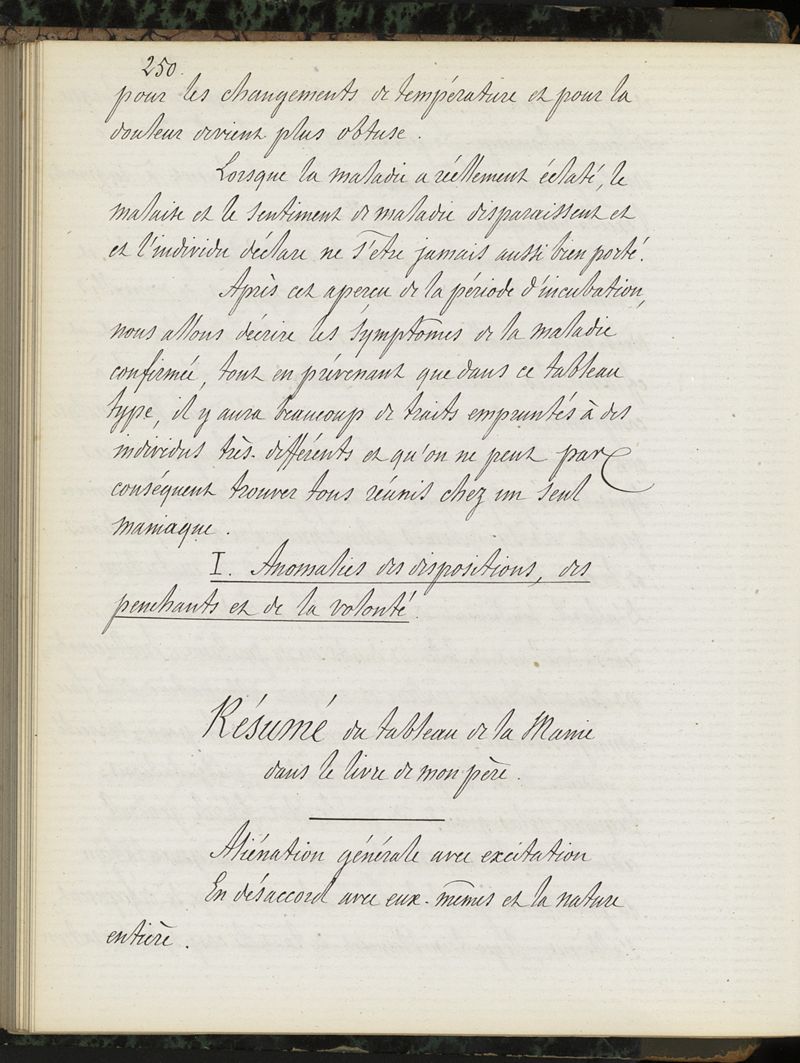 250.
pour les changements de température et pour la
douleur devient plus obtuse.
Lorsque la maladie a réellement éclaté, le
malaise et le sentiment de maladie disparaissent et
et l'individu déclare ne s'être jamais aussi bien porté.
Après cet aperçu de la période d'incubation,
nous allons décrire les symptômes de la maladie
confirmée, tout en prévenant que dans ce tableau
type, il y aura beaucoup de traits empruntés à des
individus très-différents et qu'on ne peut par
conséquent trouver tous réunis chez un seul
maniaque.
I. Anomalies des dispositions, des
penchants et de la volonté.
Résumé du tableau de la Manie
dans le livre de mon père.
Aliénation générale avec excitation
En désaccord avec eux-mêmes et la nature
entière.